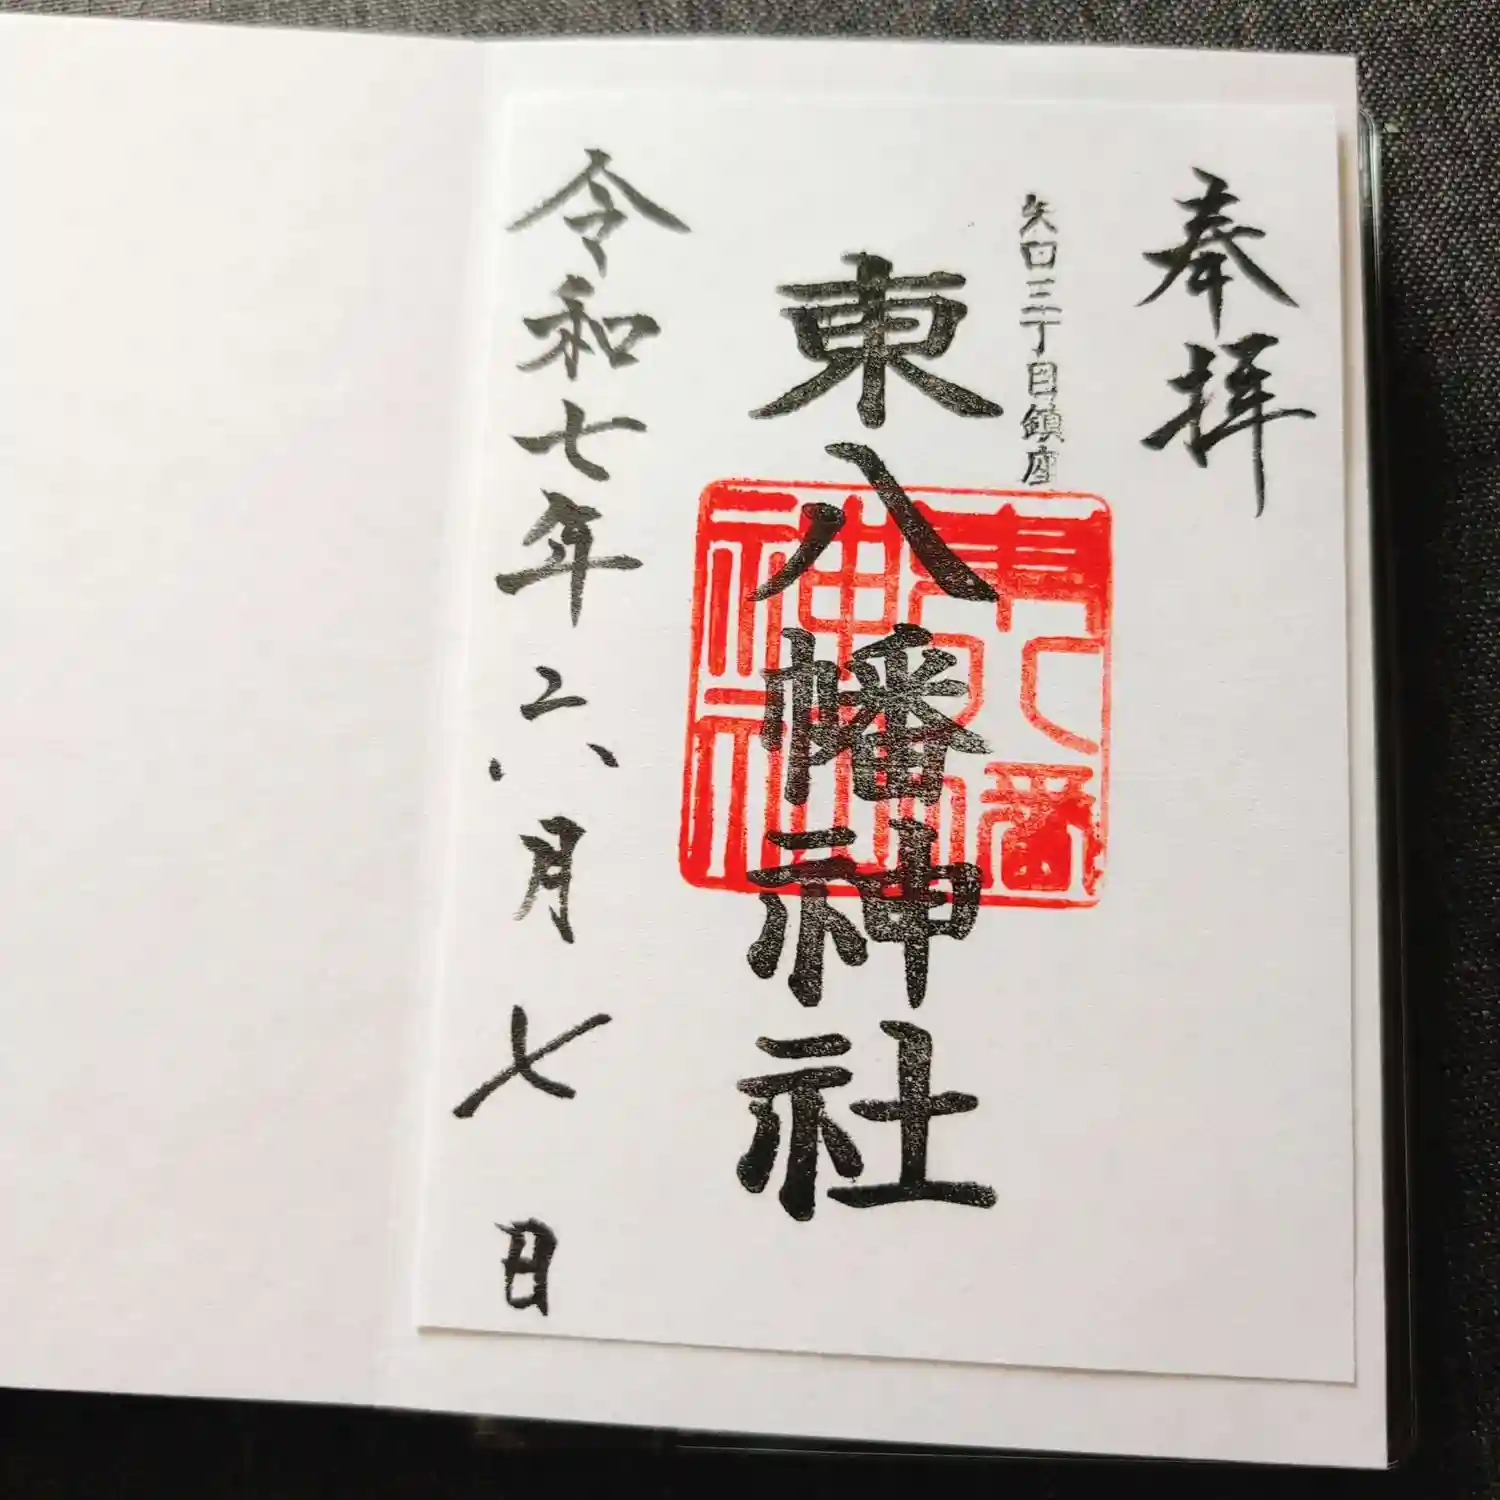 奉拝
矢口三丁目鎮座
東八幡神社
東八幡
神社
令和七年六月七日